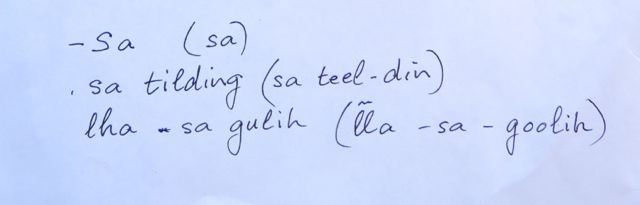 - Sa (sa)
. sa tilding (sa teel-din)
lha - sa gulih (l̃la - sa - goolih)